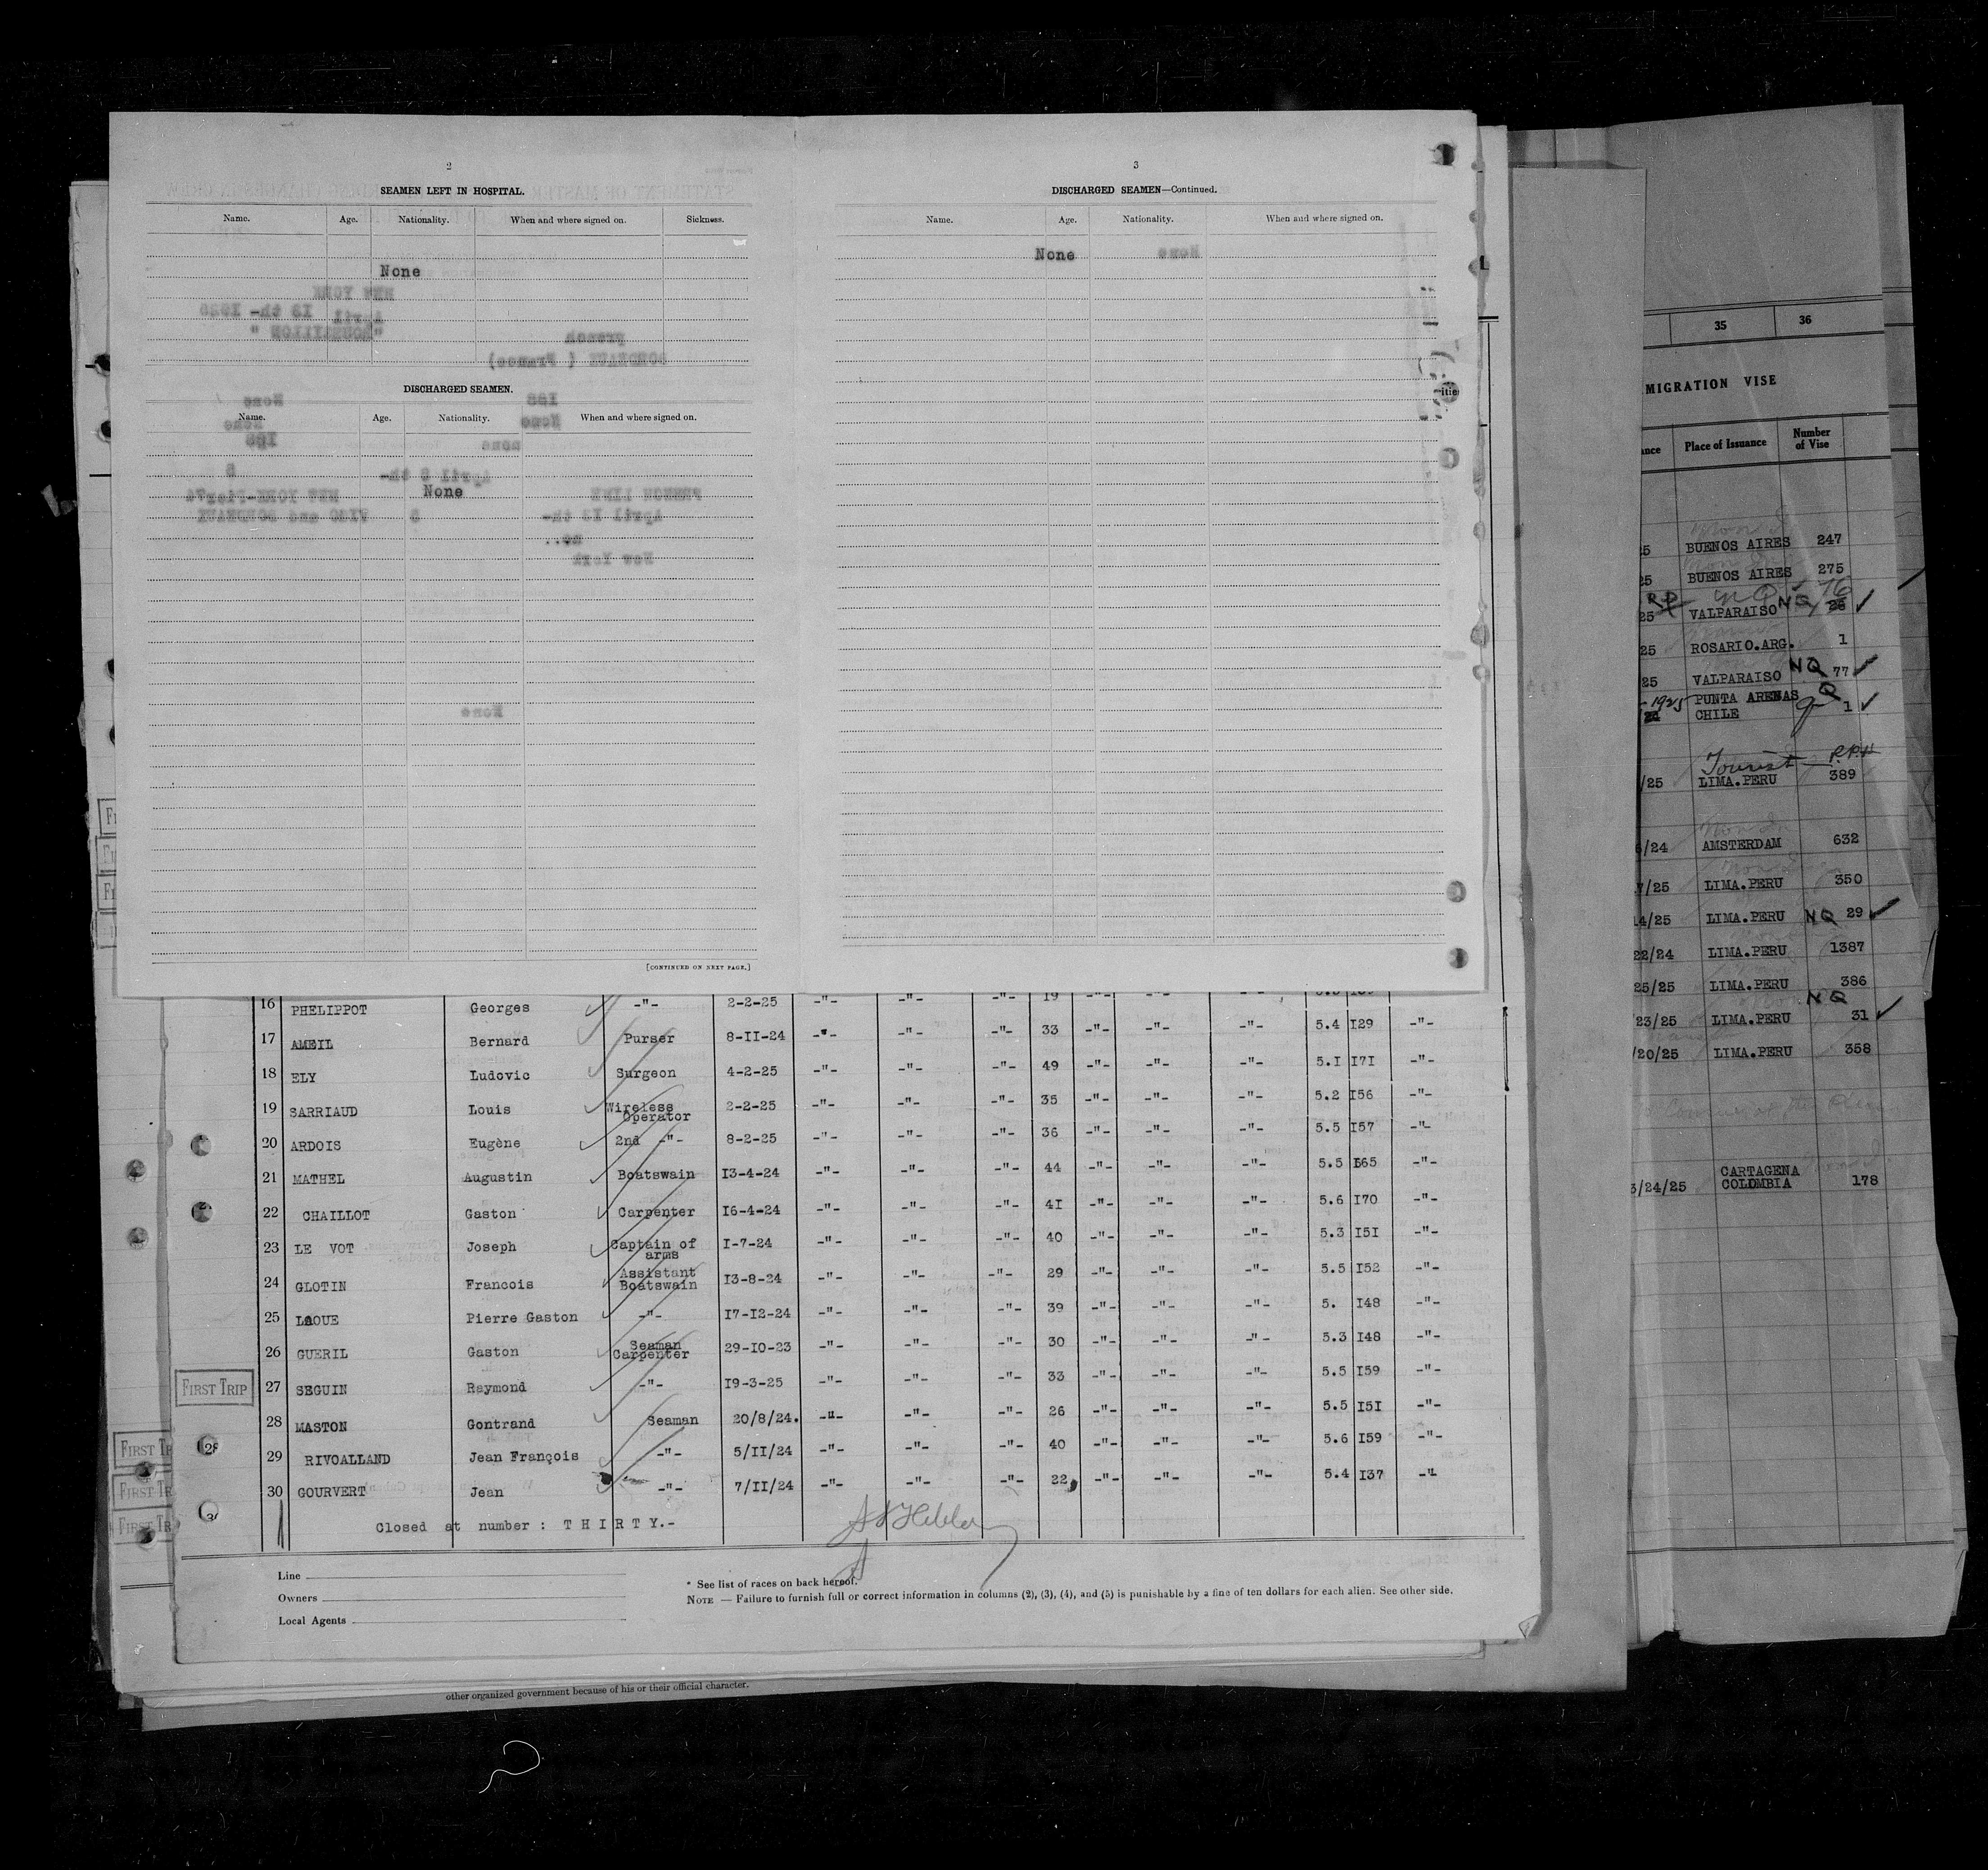 2
SEAMEN LEFT IN HOSPITAL.
Name. Age. Nationality. When and where signed on. Sickness.
None
DISCHARGED SEAMEN.
Name. Age. Nationality. When and where signed on.
None
[CONTINUED ON NEXT PAGE.]
3
DISCHARGED SEAMEN—Continued.
Name. Age. Nationality. When and where signed on.
None
16 PHELIPPOT Georges -"- 2-2-25 -"- -"- -"- 19 -"- -"- -"-
17 AMEIL Bernard Purser 8-II-24 -"- -"- -"- 33 -"- -"- -"- 5.4 I29 -"-
18 ELY Ludovic Surgeon 4-2-25 -"- -"- -"- 49 -"- -"- -"- 5.I I7I -"-
19 SARRIAUD Louis Wireless Operator 2-2-25 -"- -"- -"- 35 -"- -"- -"- 5.2 I56 -"-
20 ARDOIS Eugène 2nd -"- 8-2-25 -"- -"- -"- 36 -"- -"- -"- 5.5 I57 -"-
21 MATHEL Augustin Boatswain I3-4-24 -"- -"- -"- 44 -"- -"- -"- 5.5 I65 -"-
22 CHAILLOT Gaston Carpenter I6-4-24 -"- -"- -"- 4I -"- -"- -"- 5.6 I70 -"-
23 LE VOT Joseph Captain of arms I-7-24 -"- -"- -"- 40 -"- -"- -"- 5.3 I5I -"-
24 GLOTIN Francois Assistant Boatswain I3-8-24 -"- -"- -"- 29 -"- -"- -"- 5.5 I52 -"-
25 LAOUE Pierre Gaston -"- I7-I2-24 -"- -"- -"- 39 -"- -"- -"- 5. I48 -"-
26 GUERIL Gaston Seaman Carpenter 29-I0-23 -"- -"- -"- 30 -"- -"- -"- 5.3 I48 -"-
FIRST TRIP 27 SEGUIN Raymond -"- I9-3-25 -"- -"- -"- 33 -"- -"- -"- 5.5 I59 -"-
28 MASTON Gontrand Seaman 20/8/24. -"- -"- -"- 26 -"- -"- -"- 5.5 I5I -"-
29 RIVOALLAND Jean François -"- 5/II/24 -"- -"- -"- 40 -"- -"- -"- 5.6 I59 -"-
30 GOURVERT Jean -"- 7/II/24 -"- -"- -"- 22 -"- -"- -"- 5.4 I37 -"-
Closed at number : T H I R T Y.-
Line
Owners
Local Agents
* See list of races on back hereof.
NOTE — Failure to furnish full or correct information in columns (2), (3), (4), and (5) is punishable by a fine of ten dollars for each alien. See other side.
other organized government because of his or their official character.
35 36
MIGRATION VISE
Place of Issuance Number of Vise
25 BUENOS AIRES 247
25 BUENOS AIRES 275
25 VALPARAISO NQ 26 76
25 ROSARIO.ARG. 1
25 VALPARAISO NQ 77
1925 PUNTA ARENAS
CHILE 1
Tourist
/25 LIMA.PERU 389
/24 AMSTERDAM 632
7/25 LIMA.PERU 350
14/25 LIMA.PERU NQ 29
22/24 LIMA.PERU 1387
25/25 LIMA.PERU 386
NQ
/23/25 LIMA.PERU 31
/20/25 LIMA.PERU 358
CARTAGENA
3/24/25 COLOMBIA 178